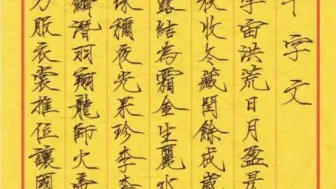 千字文
宇宙洪荒日月盈昃
秋收冬藏閏餘成歲
露結為霜金生麗水
珠稱夜光果珍李
鱗潛羽翔龍師火
乃服衣裳推位讓國